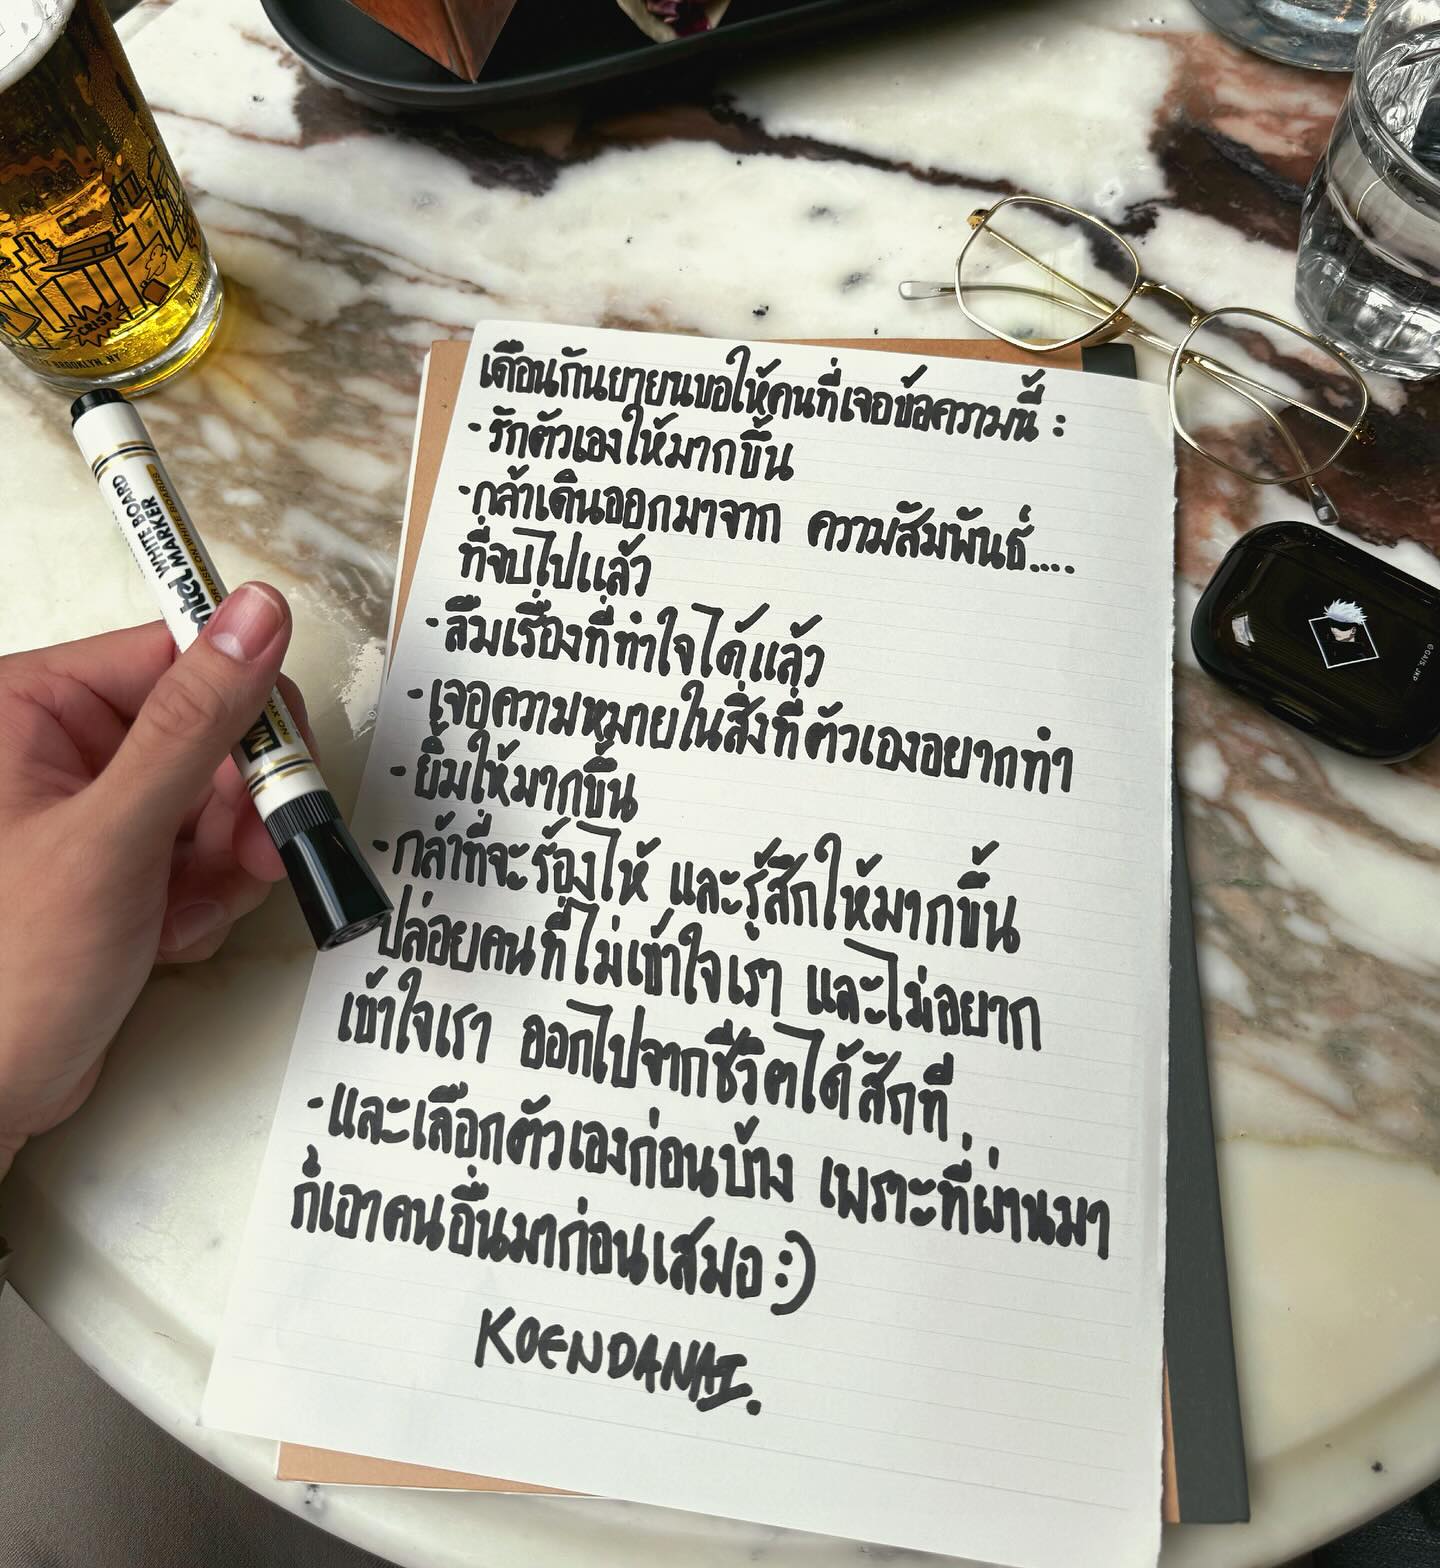 เดือนกันยายนขอให้คนที่เจอข้อความนี้ :
- รักตัวเองให้มากขึ้น
- กล้าเดินออกมาจาก ความสัมพันธ์....
ที่จบไปแล้ว
- ลืมเรื่องที่ทำใจได้แล้ว
- เจอความหมายในสิ่งที่ตัวเองอยากทำ
- ยิ้มให้มากขึ้น
- กล้าที่จะร้องไห้ และรู้สึกให้มากขึ้น
ปล่อยคนที่ไม่เข้าใจเรา และไม่อยาก
เข้าใจเรา ออกไปจากชีวิตได้สักที
- และเลือกตัวเองก่อนบ้าง เพราะที่ผ่านมา
ก็เอาคนอื่นมาก่อนเสมอ :)
KOENDANAI.
WHITEBOARD
MARKER
CRISP
BROOKLYN, NY